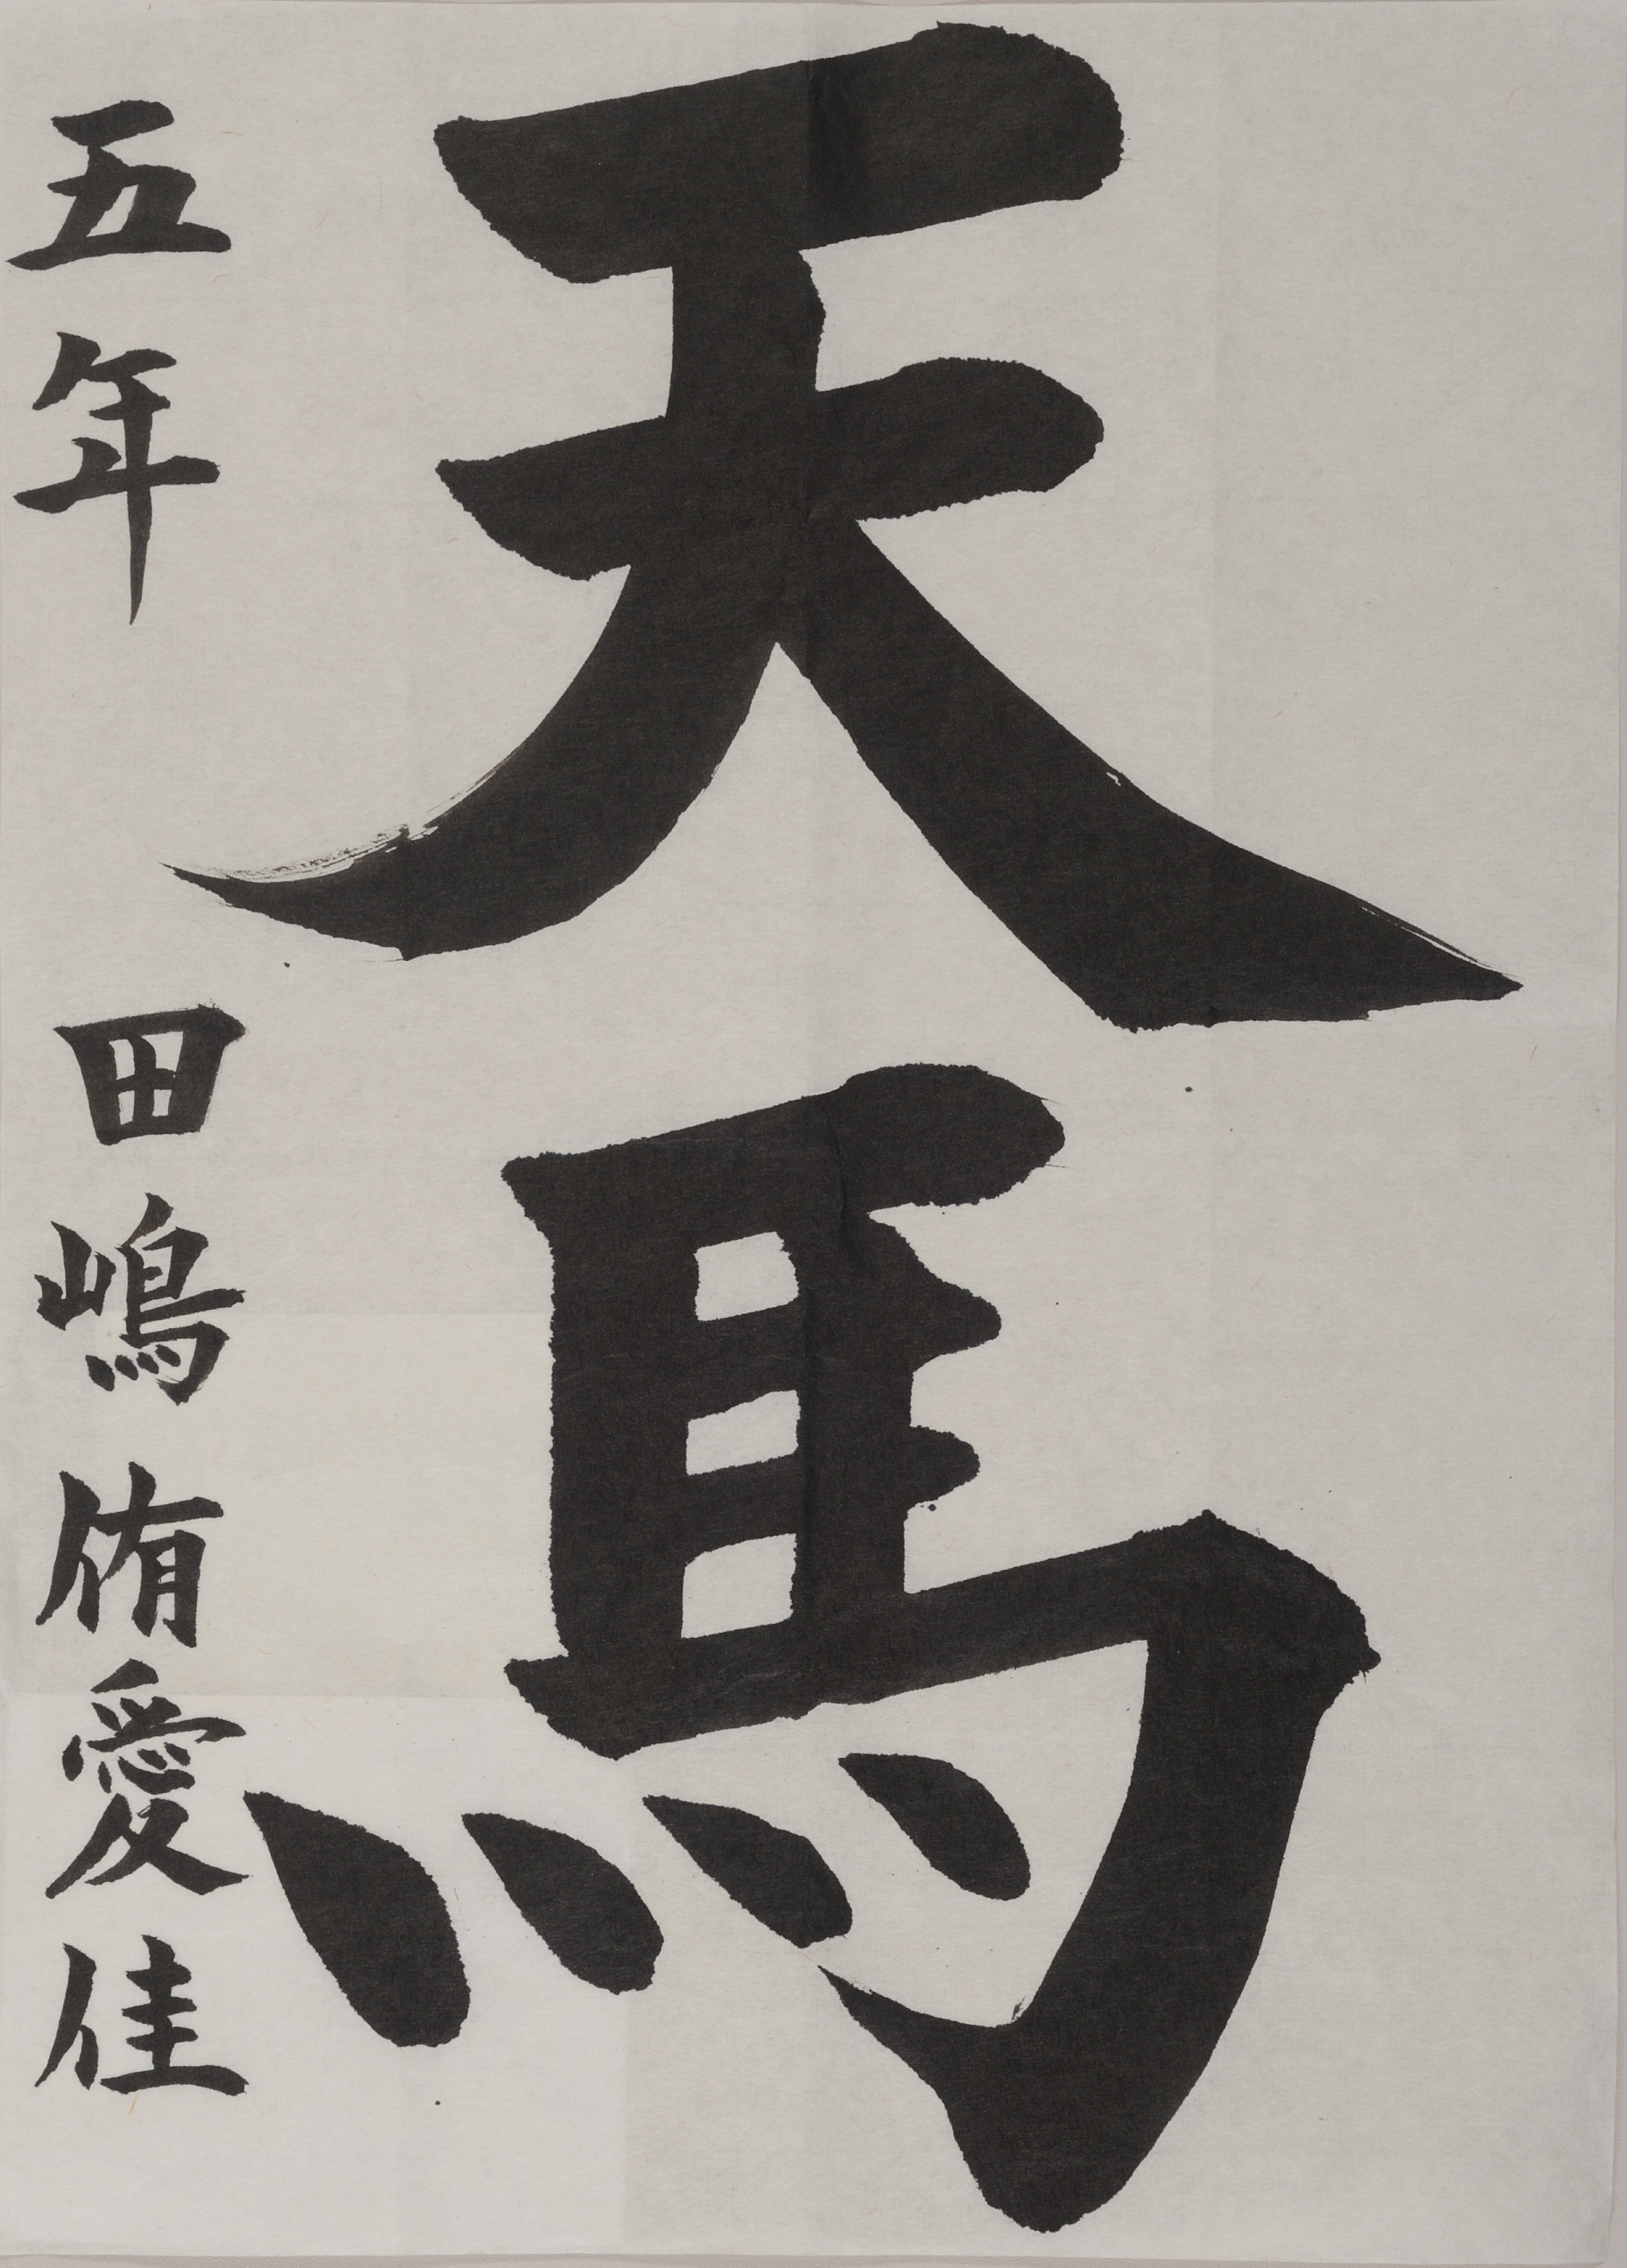 天馬
五年 田嶋侑愛佳